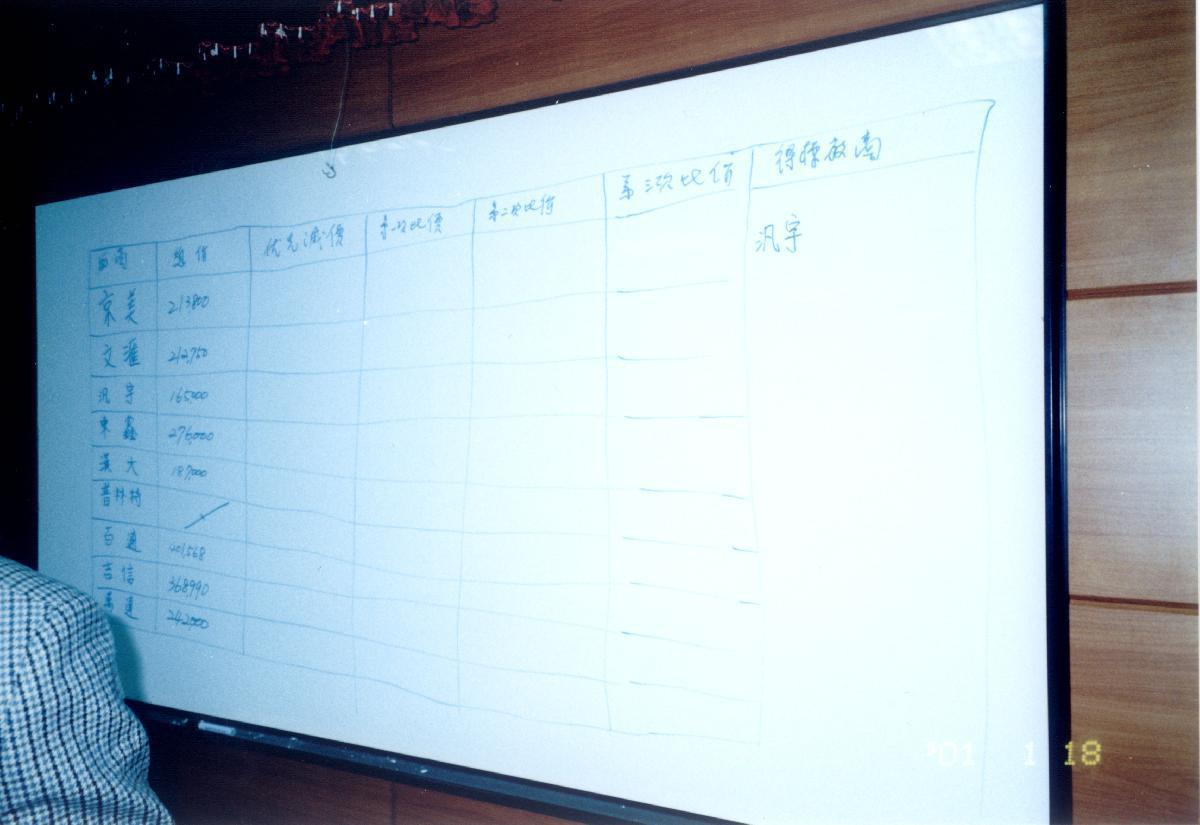 廠商 總價 優先減價 第一次比價 第二次比價 第三次比價 得標廠商
京美 213800 汎宇
文滙 212,750
汎宇 165,000
東鑫 276,000
漢大 187,000
普科特
百通 201,568
吉信 368,990
242,000
'01 1 18